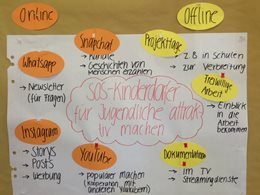 Online
Offline
Snapchat
→ Kanäle
→ Geschichten von
Menschen erzählen
Projekttage
→ z.B. in Schulen
→ zur Verbreitung
Whatsapp
→ Newsletter
(für Fragen)
SOS-Kinderdörfer
für Jugendliche attrak-
tiv machen
Freiwillige
Arbeit
→ Einblick
in die
Arbeit
bekommen
Instagram
→ Storys
→ Posts
→ Werbung
YouTube
→ populärer machen
→ Kooperation mit
anderen
Dokumentationen
→ im TV
→ Streamingdienste